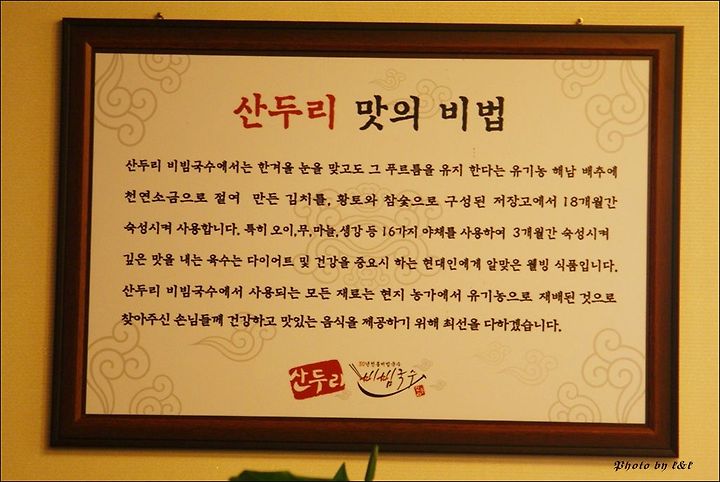 산두리 맛의 비법
산두리 비빔국수에서는 한겨울 눈을 맞고도 그 푸르름을 유지 한다는 유기농 해남 배추에
천연소금으로 절여 만든 김치를, 황토와 참숯으로 구성된 저장고에서 18개월간
숙성시켜 사용합니다. 특히 오이,무,마늘,생강 등 16가지 야채를 사용하여 3개월간 숙성시켜
깊은 맛을 내는 육수는 다이어트 및 건강을 중요시 하는 현대인에게 알맞은 웰빙 식품입니다.
산두리 비빔국수에서 사용되는 모든 재료는 현지 농가에서 유기농으로 재배된 것으로
찾아주신 손님들께 건강하고 맛있는 음식을 제공하기 위해 최선을 다하겠습니다.
산두리 비빔국수
Photo by l&l